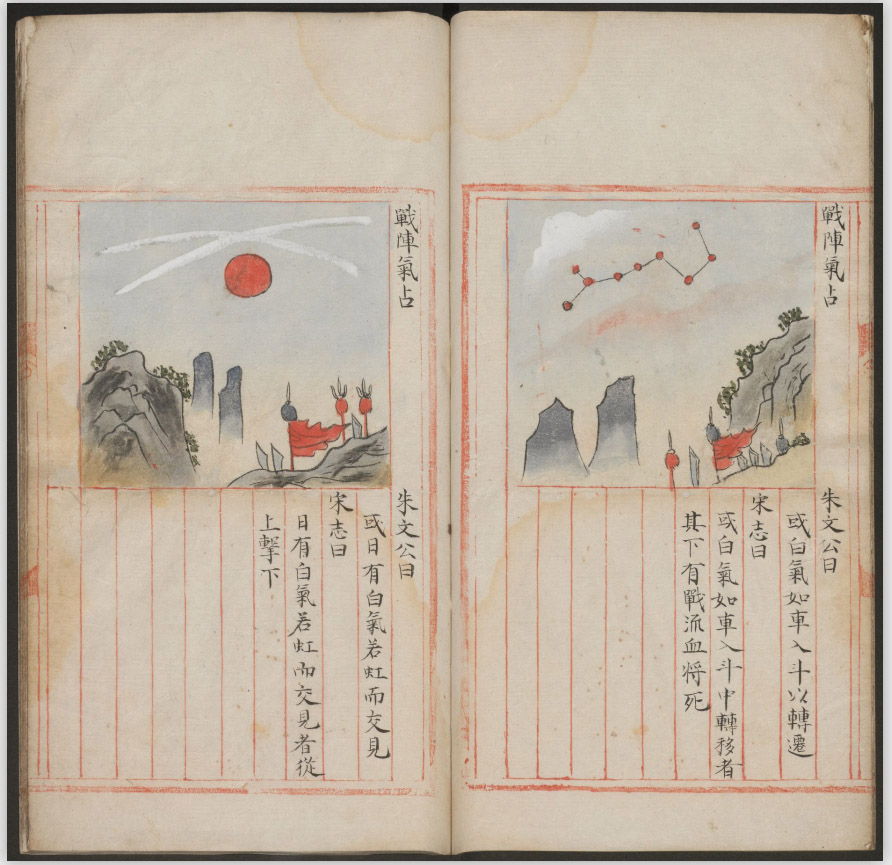 戰陣氣占
朱文公曰
或白氣如車入斗以轉遷
宋志曰
或白氣如車入斗中轉移者
其下有戰流血將死
戰陣氣占
朱文公曰
或日有白氣若虹而交見
宋志曰
日有白氣若虹而交見者從
上擊下